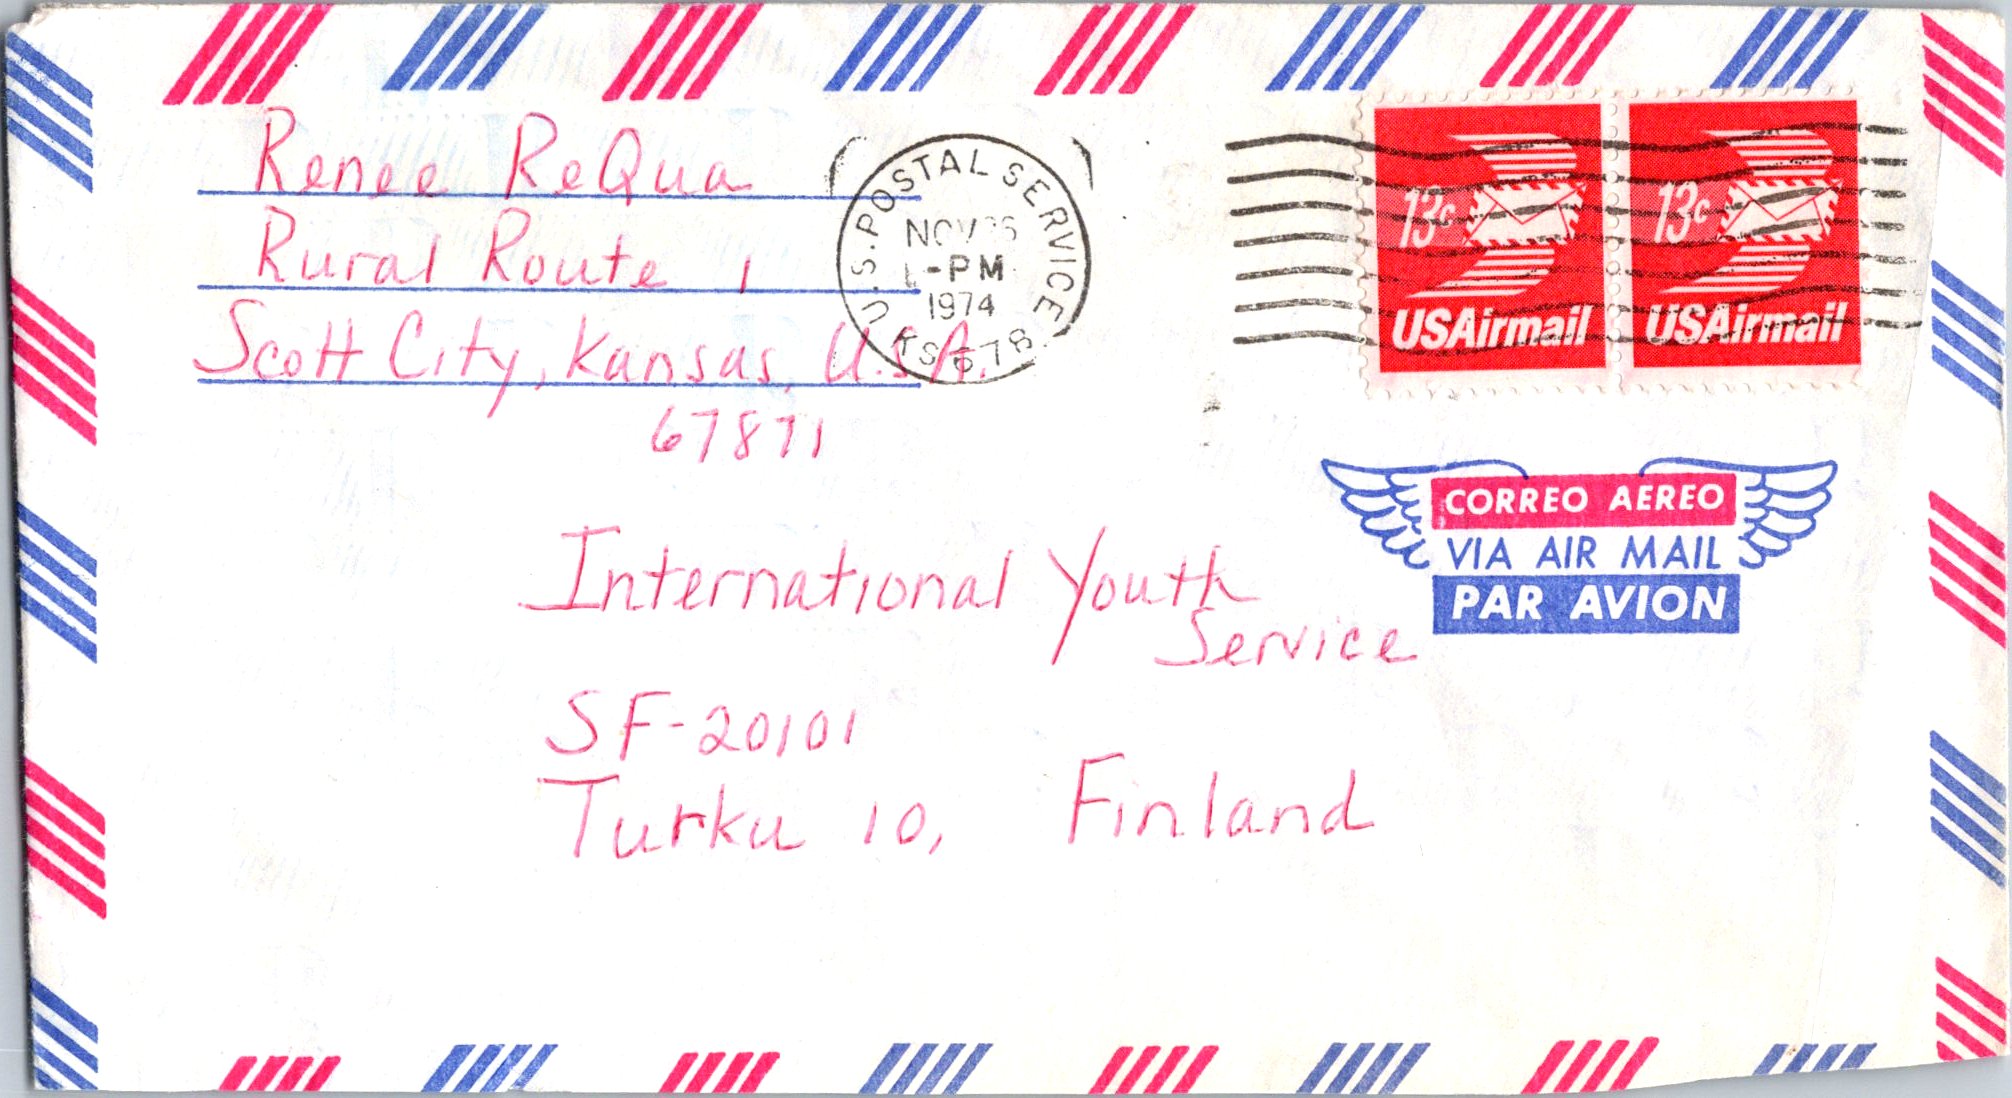 Renee ReQua
Rural Route 1
Scott City, Kansas, U.S.A.
67871
U.S. POSTAL SERVICE
NOV
PM
1974
KS 678
13c
USAirmail
13c
USAirmail
CORREO AEREO
VIA AIR MAIL
PAR AVION
International Youth
Service
SF-20101
Turku 10, Finland